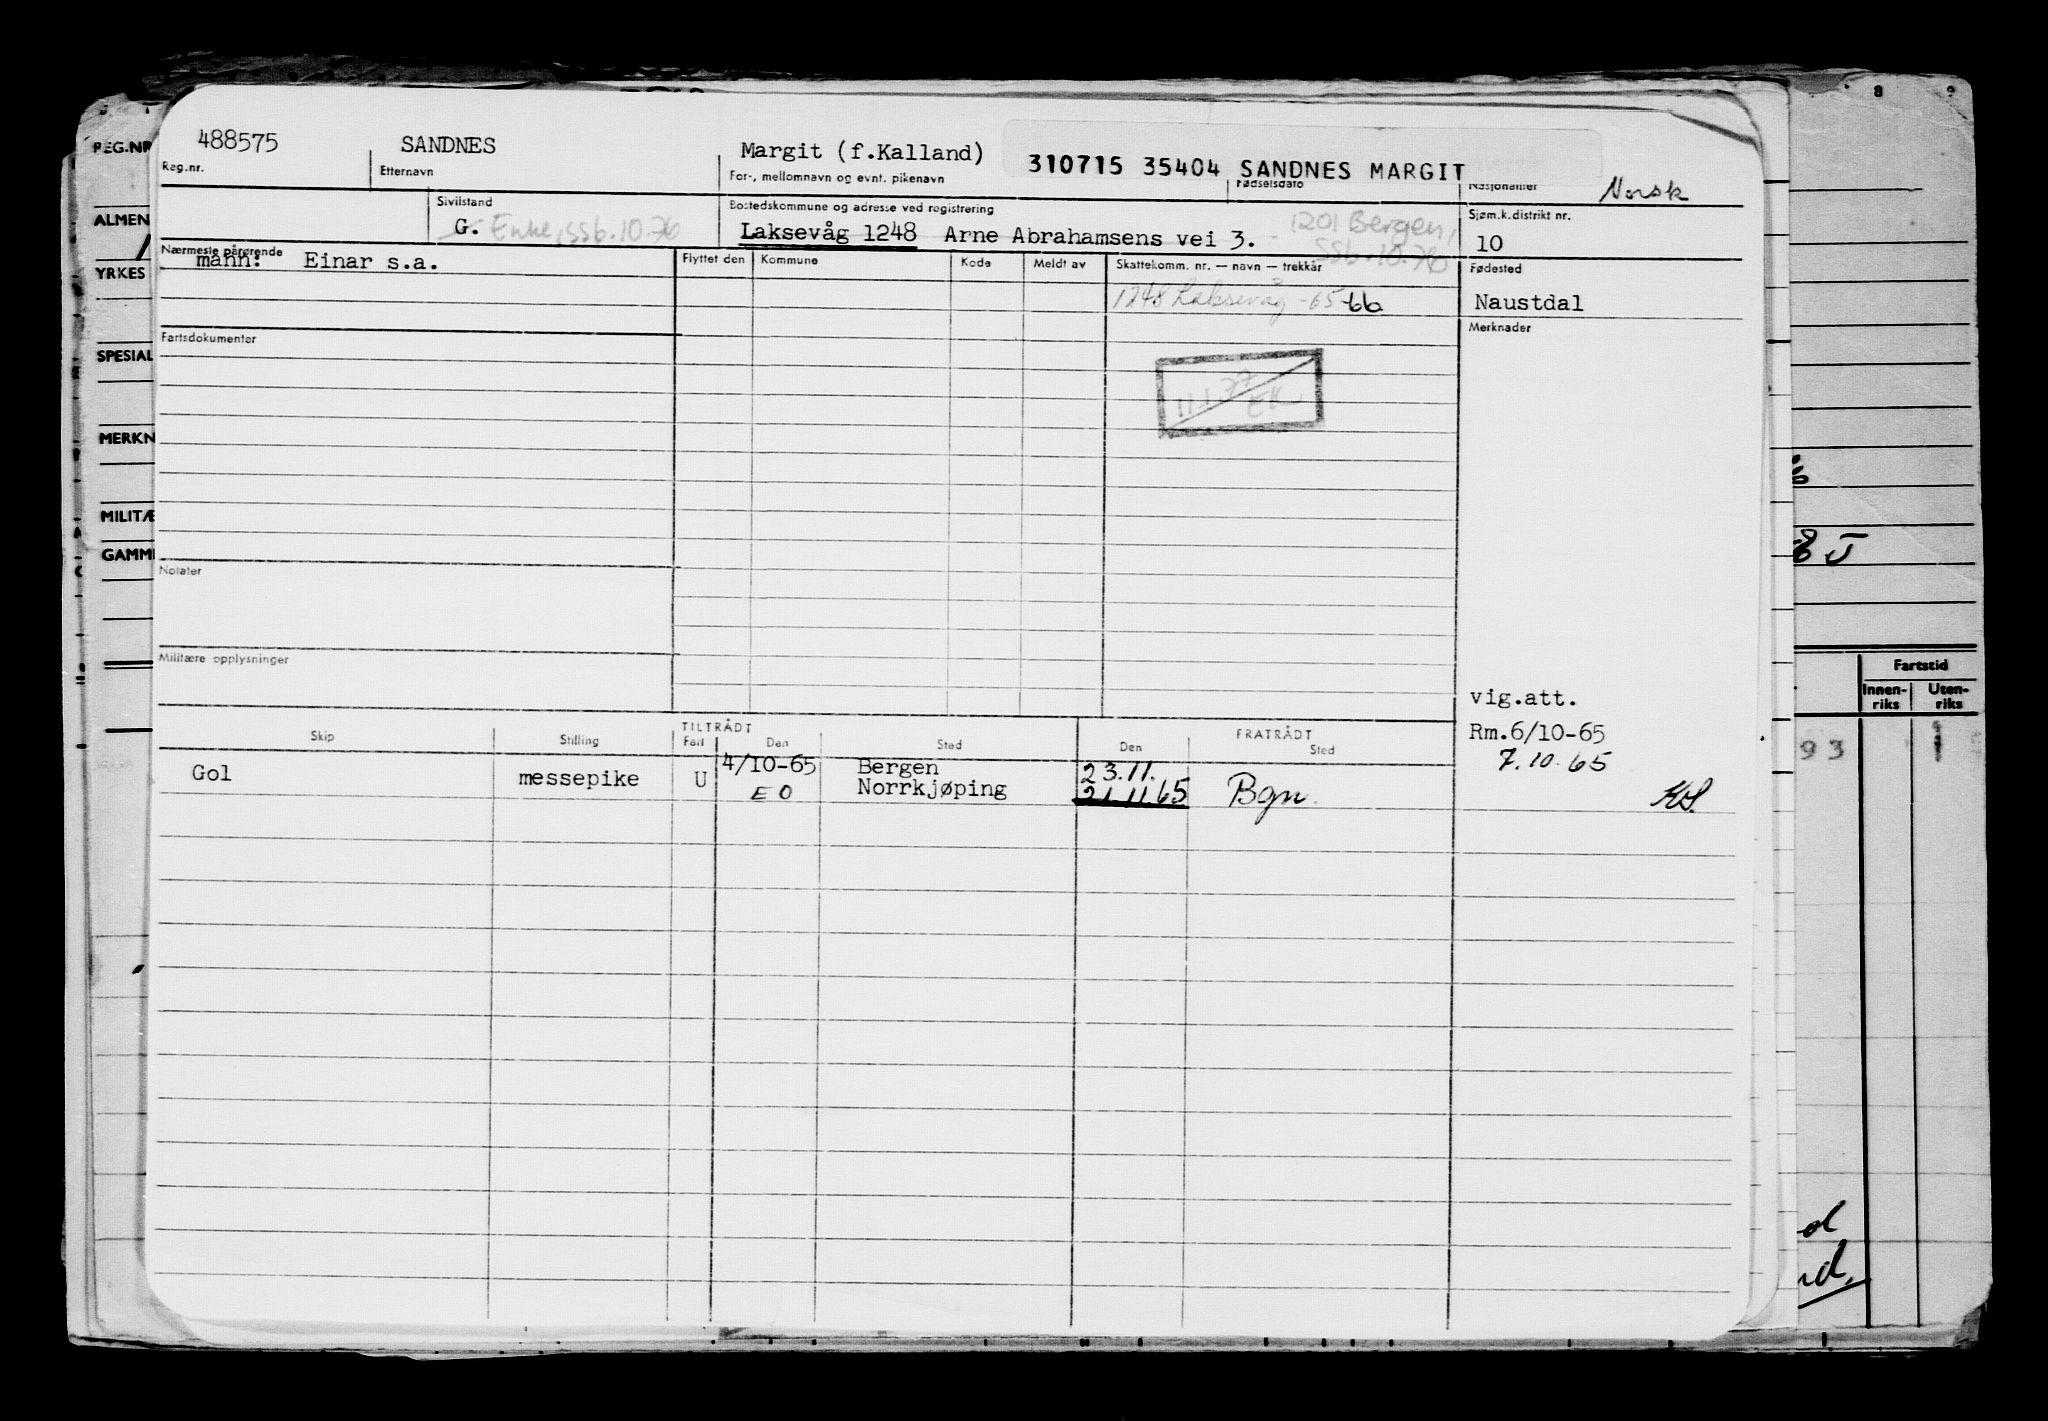 488575 SANDNES Margit (f.Kalland) 310715 35404 SANDNES MARGIT
Reg.nr. Etternavn For-, mellomnavn og evnt. pikenavn Fødselsdato Nasjonalitet Norsk
Sivilstand Bostedskommune og adresse ved registrering Sjøm.k.distrikt nr.
G. Enke, SSb.10.76 Laksevåg 1248 Arne Abrahamsens vei 3. 1201 Bergen, SSb.10.76 10
Nærmeste pårørende Flyttet den Kommune Kode Meldt av Skattekomm. nr. — navn — trekkår Fødested
mann: Einar s.a.
1248 Laksevåg -65-66 Naustdal
Fartsdokumenter Merknader
11.1.77
EK.
Notater
Militære opplysninger
vig.att.
Rm.6/10-65
7.10.65
KS.
TILTRÅDT FRATRÅDT
Skip Stilling Fart Den Sted Den Sted
Gol messepike U 4/10-65 Bergen 23.11.
EO Norrkjøping 21.11.65 Bgn.
REG.NR
ALMEN
YRKES
SPESIAL
MERKN
MILITÆ
GAMM
8 9
8 J
Fartstid
Innen-riks Uten-riks
93 1